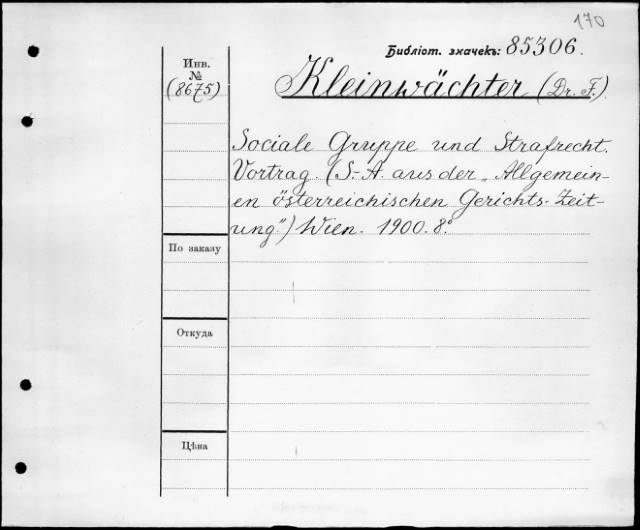 170
Библіот. значекъ: 85306.
Инв.
№
(8675)
Kleinwächter (Dr. F.)
Sociale Gruppe und Strafrecht.
Vortrag. (S.-A. aus der „Allgemein-
en österreichischen Gerichts-Zeit-
ung“) Wien. 1900. 8.°
По заказу
Откуда
Цѣна